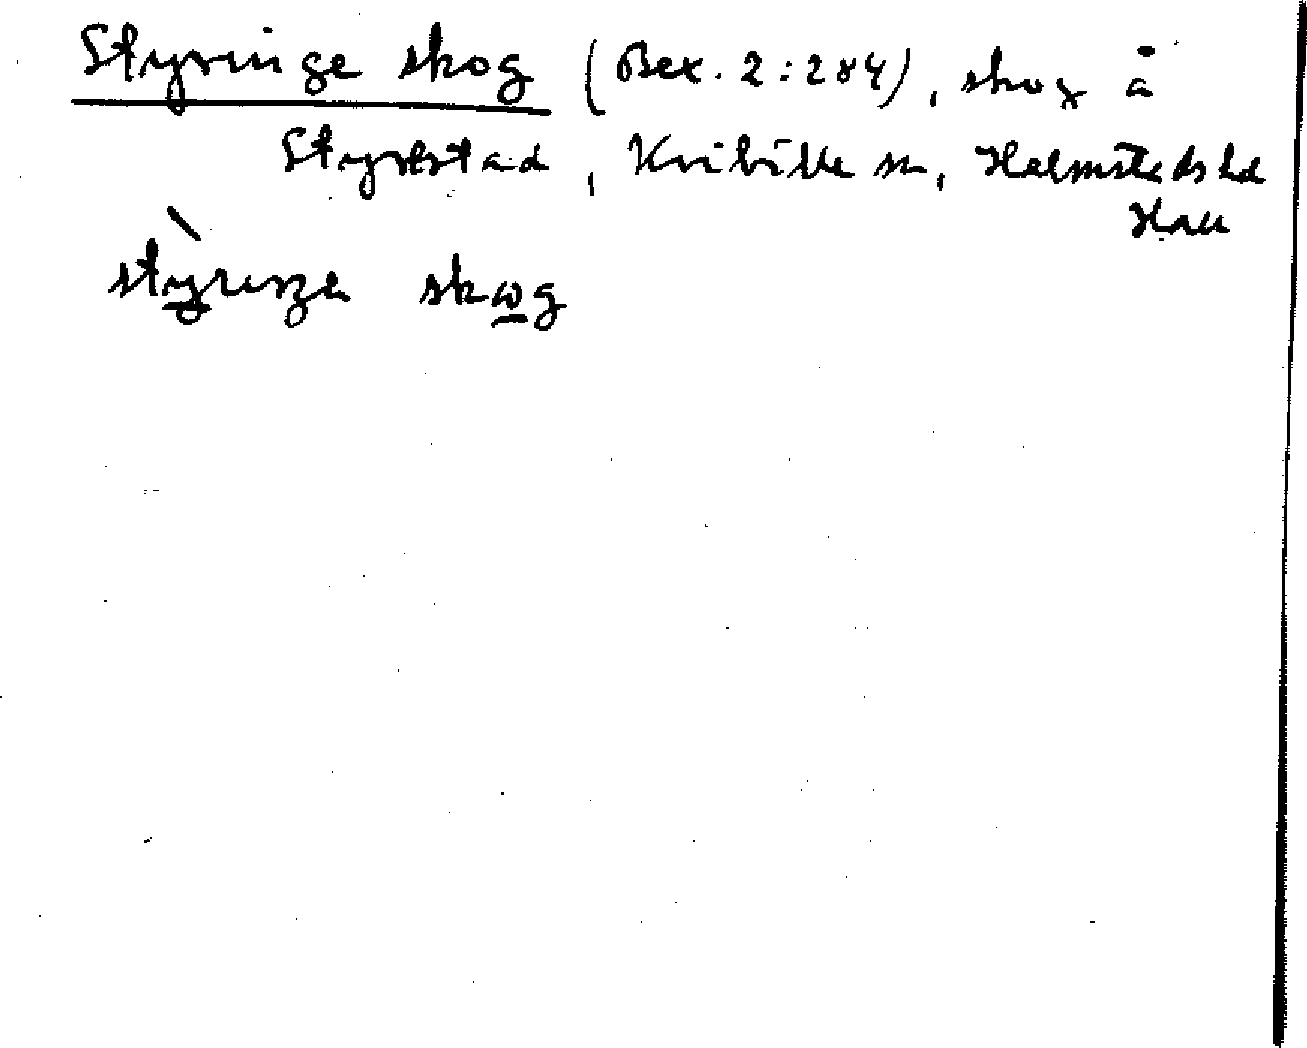 Styringe skog (Bex. 2:284), skog å
Styrestad, Kvibille sn, Halmstads hd
Hall
skog